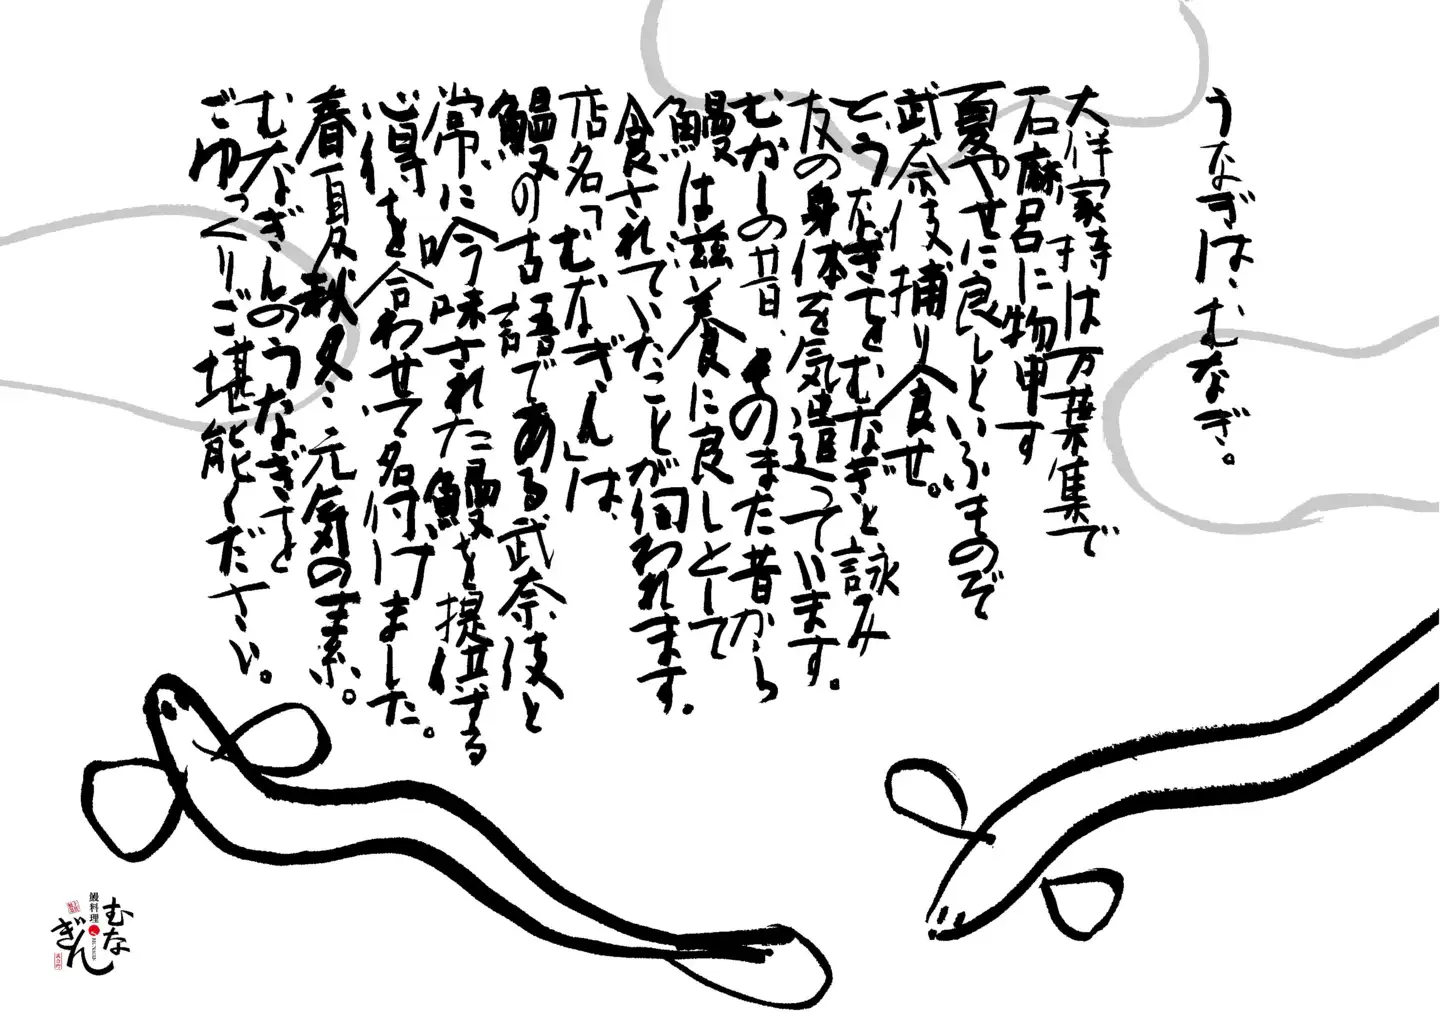 うなぎは、むなぎ。
大伴家持は万葉集で
石麻呂に物申す
夏やせに良しといふものぞ
武奈伎捕り食せ。
とうなぎをむなぎと詠み
友の身体を気遣っています。
むかしの昔、そのまた昔から
鰻は滋養食に良しとして
食されていたことが伺われます。
店名「むなぎん」は、
鰻の古語である武奈伎と
常に吟味された鰻を提供する
心得を合わせて名付けました。
春夏秋冬、元気の素。
むなぎんのうなぎをと
ごゆっくりご堪能ください。
鰻料理
むなぎん